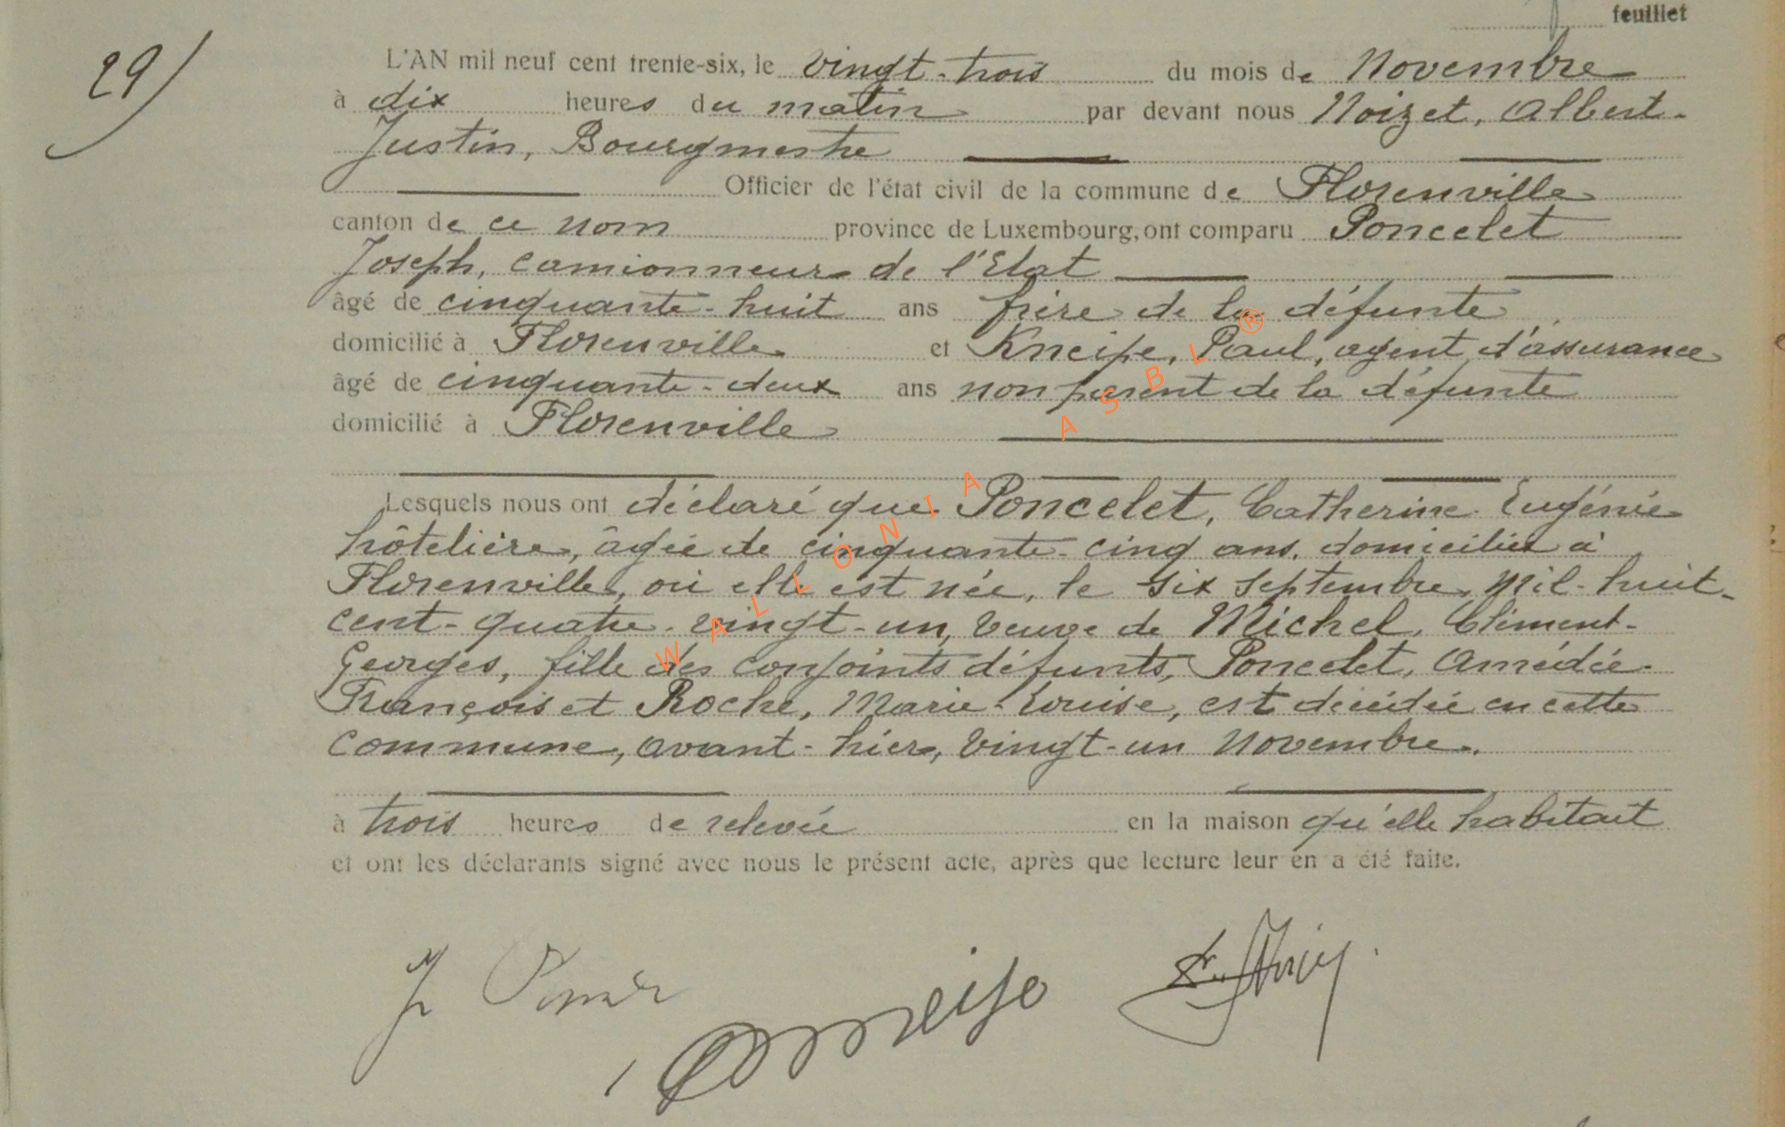 feuillet
29)
L'AN mil neuf cent trente-six, le vingt-trois du mois de Novembre
à dix heures du matin par devant nous Noizet, Albert-
Justin, Bourgmestre
Officier de l'état civil de la commune de Florenville
canton de ce nom province de Luxembourg, ont comparu Poncelet
Joseph, camionneur de l'Etat
âgé de cinquante-huit ans frère de la défunte
domicilié à Florenville et Kneipe, Paul, agent d'assurance
âgé de cinquante-deux ans non parent de la défunte
domicilié à Florenville
Lesquels nous ont déclaré que Poncelet, Catherine Eugénie
hôtelière, âgée de cinquante-cinq ans, domiciliée à
Florenville, où elle est née, le six septembre mil-huit-
cent-quatre-vingt-un, veuve de Michel, Clément-
Georges, fille des conjoints défunts, Poncelet, Amédée-
François et Roche, Marie-Louise, est décédée en cette
commune, avant-hier, vingt-un novembre.
à trois heures de relevée en la maison qu'elle habitait
et ont les déclarants signé avec nous le présent acte, après que lecture leur en a été faite.
WALLONIA ASBL ®